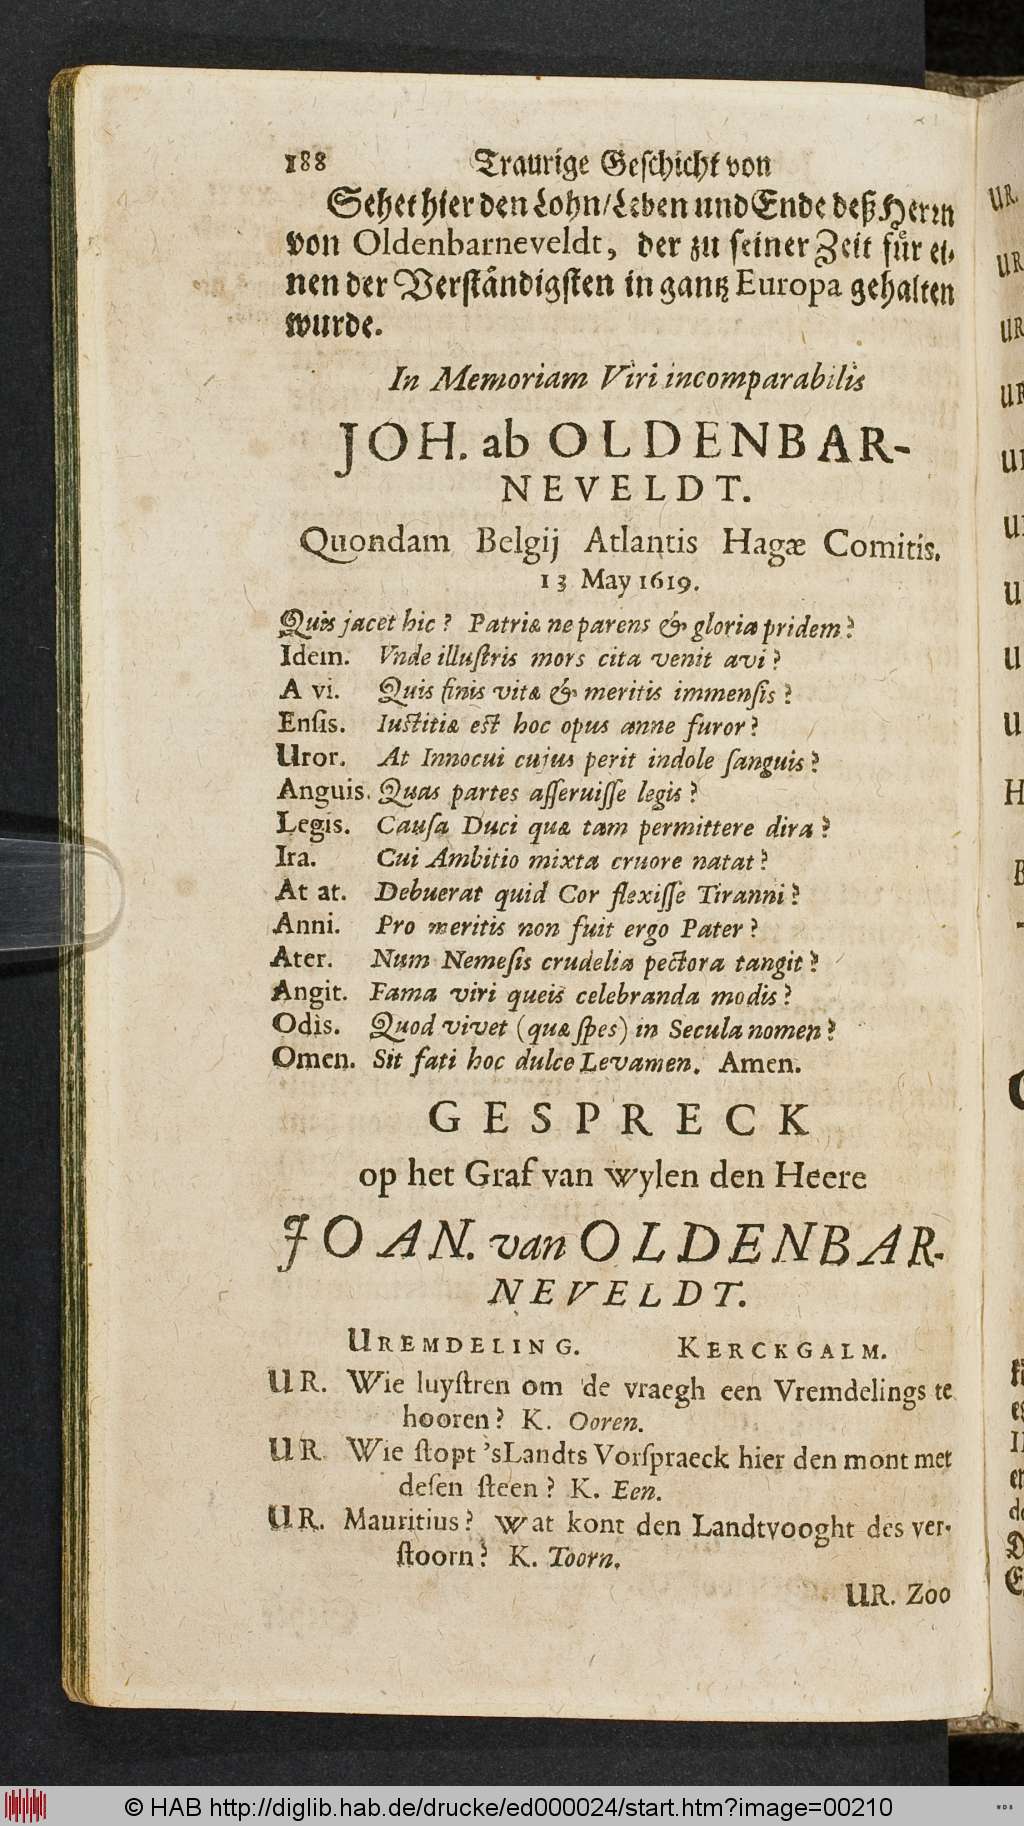 188 Traurige Geſchicht von
Sehet hier den Lohn/Leben und Ende deß Herrn
von Oldenbarneveldt, der zu ſeiner Zeit fuͤr ei-
nen der Verſtaͤndigſten in gantz Europa gehalten
wurde.
In Memoriam Viri incomparabilis
JOH. ab OLDENBAR-
NEVELDT.
Quondam Belgij Atlantis Hagæ Comitis.
13 May 1619.
Quis jacet hic? Patriæ ne parens & gloria pridem?
Idem. Vnde illuſtris mors cita venit avi?
A vi. Quis finis vitæ & meritis immenſis?
Enſis. Iuſtitiæ eſt hoc opus anne furor?
Uror. At Innocui cujus perit indole ſanguis?
Anguis. Quas partes aſſeruiſſe legis?
Legis. Cauſa Duci quæ tam permittere dira?
Ira. Cui Ambitio mixta cruore natat?
At at. Debuerat quid Cor flexiſſe Tiranni?
Anni. Pro meritis non fuit ergo Pater?
Ater. Num Nemeſis crudelia pectora tangit?
Angit. Fama viri queis celebranda modis?
Odis. Quod vivet (quæ ſpes) in Secula nomen?
Omen. Sit fati hoc dulce Levamen. Amen.
GESPRECK
op het Graf van wylen den Heere
JOAN. van OLDENBAR-
NEVELDT.
UREMDELING. KERCKGALM.
UR. Wie luyſtren om de vraegh een Vremdelings te
hooren? K. Ooren.
UR Wie ſtopt 'sLandts Vorſpraeck hier den mont met
deſen ſteen? K. Een.
UR. Mauritius? wat kont den Landtvooght des ver-
ſtoorn? K. Toorn.
UR. Zoo
UR.
UR
UR
UR
© HAB http://diglib.hab.de/drucke/ed000024/start.htm?image=00210